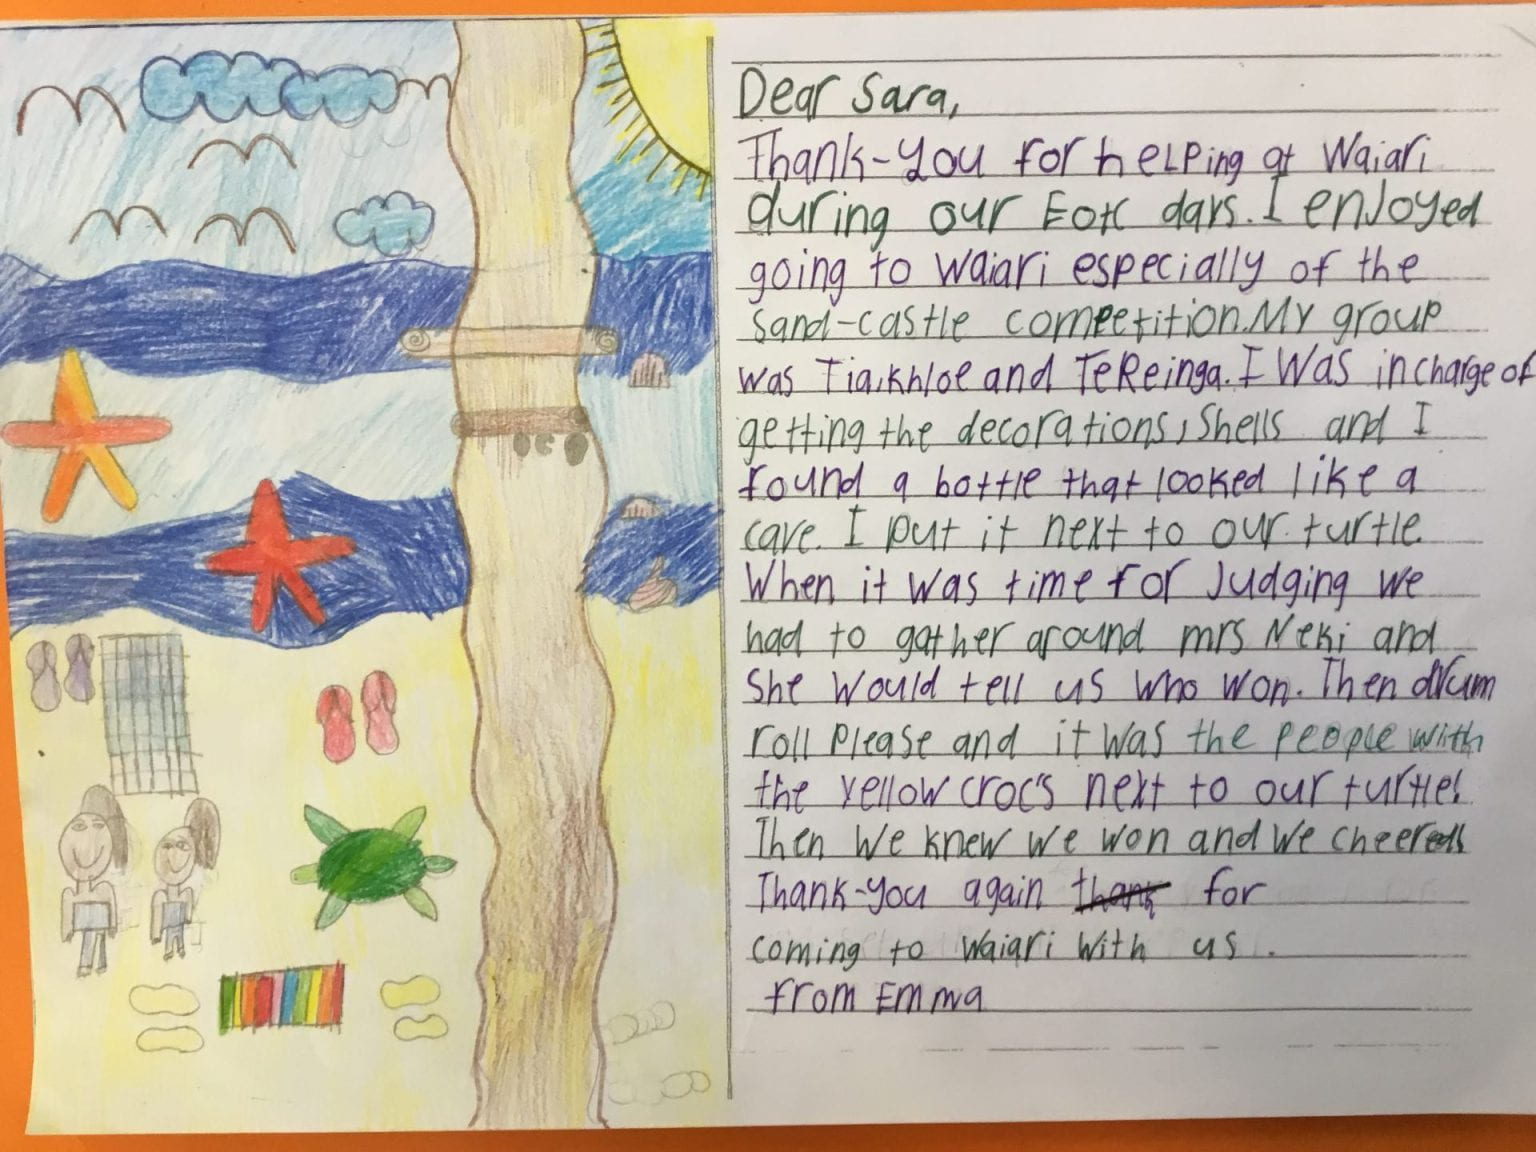 Dear Sara,
Thank-you for helping at Waiari
during our EOTC days. I enjoyed
going to Waiari especially of the
sand-castle competition. My group
was Tia, Khloe and TeReinga. I was in charge of
getting the decorations, shells and I
found a bottle that looked like a
cave. I put it next to our turtle.
When it was time for judging we
had to gather around mrs Neki and
she would tell us who won. Then drum
roll please and it was the people with
the yellow croc's next to our turtle!
Then we knew we won and we cheered!
Thank-you again thank for
coming to Waiari with us.
from Emma